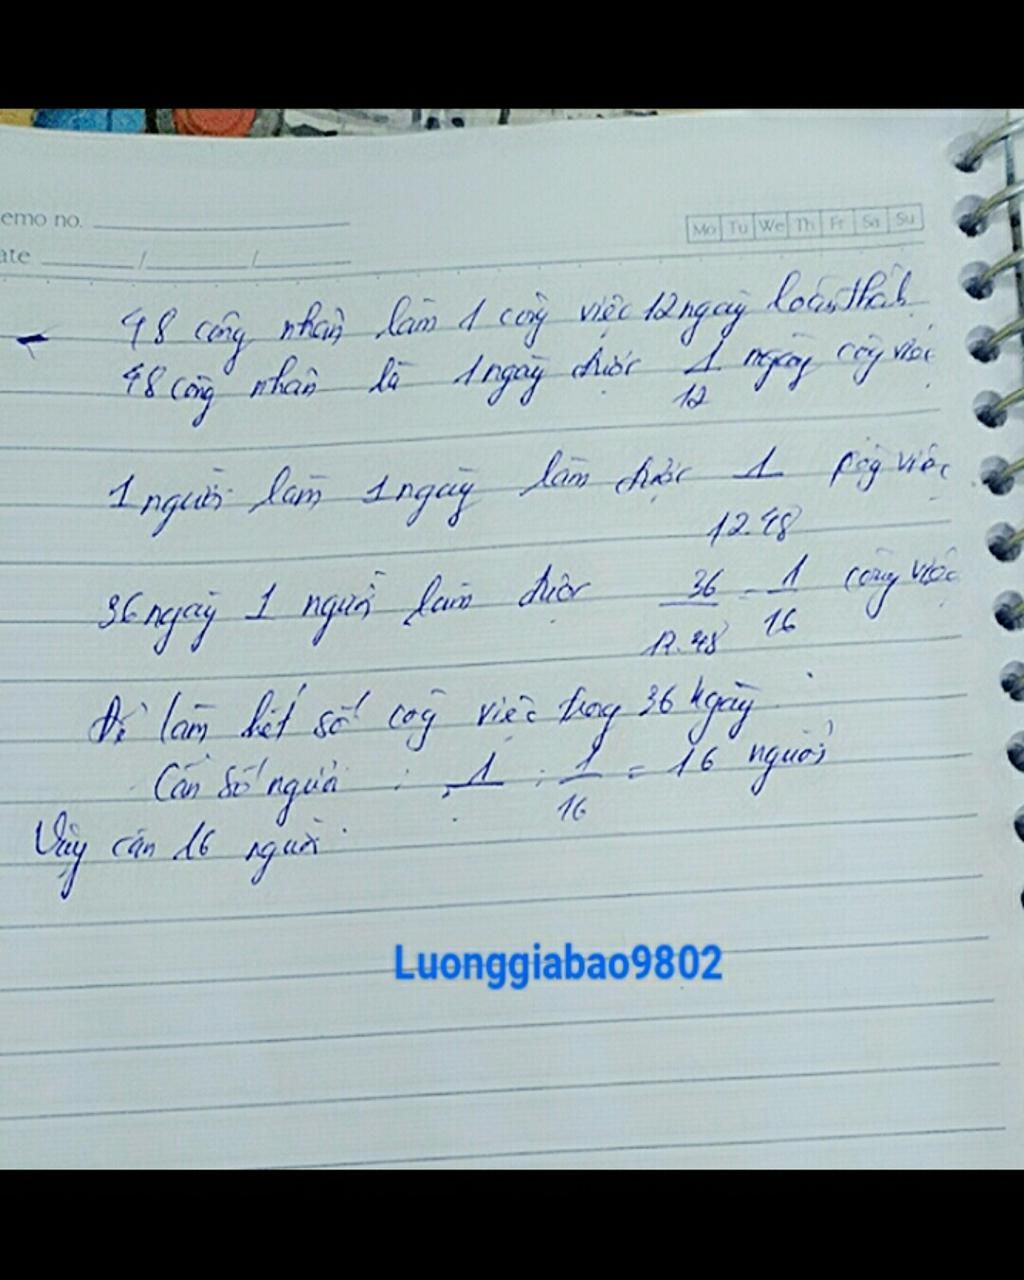 emo no.
Mo Tu We Th Fr Sa Su
ate / /
48 công nhân làm 1 công việc 12 ngày hoàn thành
48 công nhân là 1 ngày được 1/12 ngày công việc
1 người làm 1 ngày làm được 1/12.48 công việc
36 ngày 1 người làm được 36/12.48 = 1/16 công việc
Để làm hết số công việc trong 36 ngày
Cần số người : 1 : 1/16 = 16 người
Vậy cần 16 người.
Luonggiabao9802